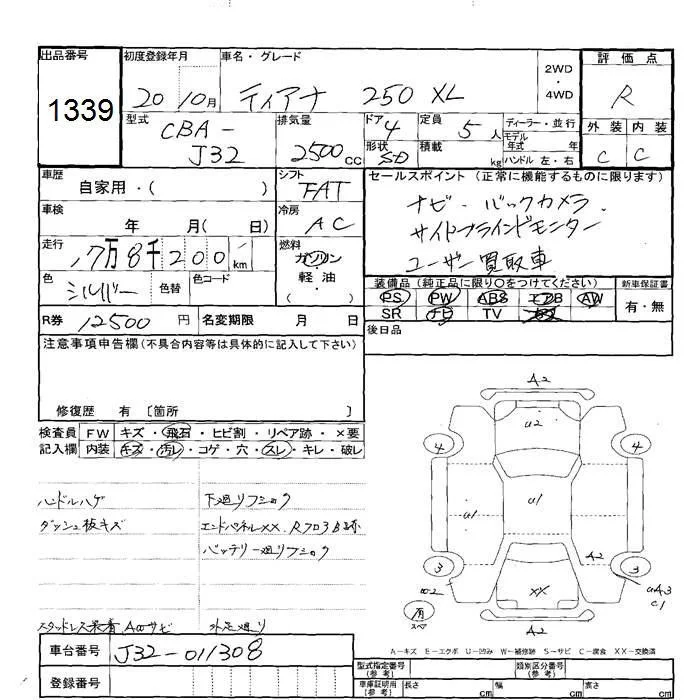 出品番号
1339
初度登録年月
20 10月
車名・グレード
ティアナ 250 XL
2WD
・
4WD
評価点
R
型式
CBA-
J32
排気量
2500cc
ドア
4
定員
5人
ディーラー・並行
モデル
年式 年
形状
SD
積載
kg
ハンドル 左・右
外装 内装
C C
車歴
自家用・( )
シフト
FAT
車検
年 月( 日)
冷房
AC
走行
17万8千200km
燃料
ガソリン
・
軽・油
( )
色
シルバー
色替
色コード
セールスポイント(正常に機能するものに限ります)
ナビ・バックカメラ
サイドブラインドモニター
ユーザー買取車
装備品(純正品に限り○をつけてください)
PS PW ABS エアB AW
SR ナビ TV
新車保証書
有・無
R券 12500円
名変期限 月 日
後日品
注意事項申告欄(不具合内容等は具体的に記入して下さい)
修復歴 有 [箇所 ]
検査員
記入欄
FW キズ・飛石・ヒビ割・リペア跡・×要
内装 キズ・汚れ・コゲ・穴・スレ・キレ・破レ
ハンドルハゲ
下廻りフショク
ダッシュ板キズ
エンドパネルXX、Rフロア
バッテリー廻りフショク
スタッドレス装着
A2
u2
4
4
u1
u1
A2
3
3
XX
A2
uA3
C1
有
スペア
A-キズ E-エクボ U-凹み W-補修跡 S-サビ C-腐食 XX-交換済
車台番号
J32-011308
登録番号
型式指定番号
(参考)
類別区分番号
(参考)
車庫証明用
(参考)
長さ cm
幅 cm
高さ cm